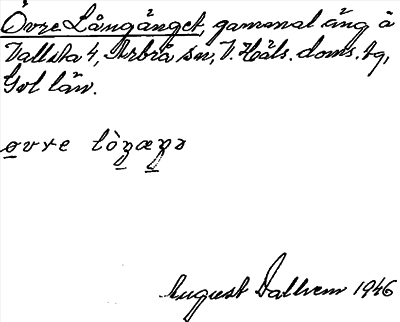 Övre Långänget, gammal äng å
Vallsta 4, Arbrå sn, V. Häls. doms. tg,
Gvl län.
øvre lòŋæŋə
August Dallven 1946